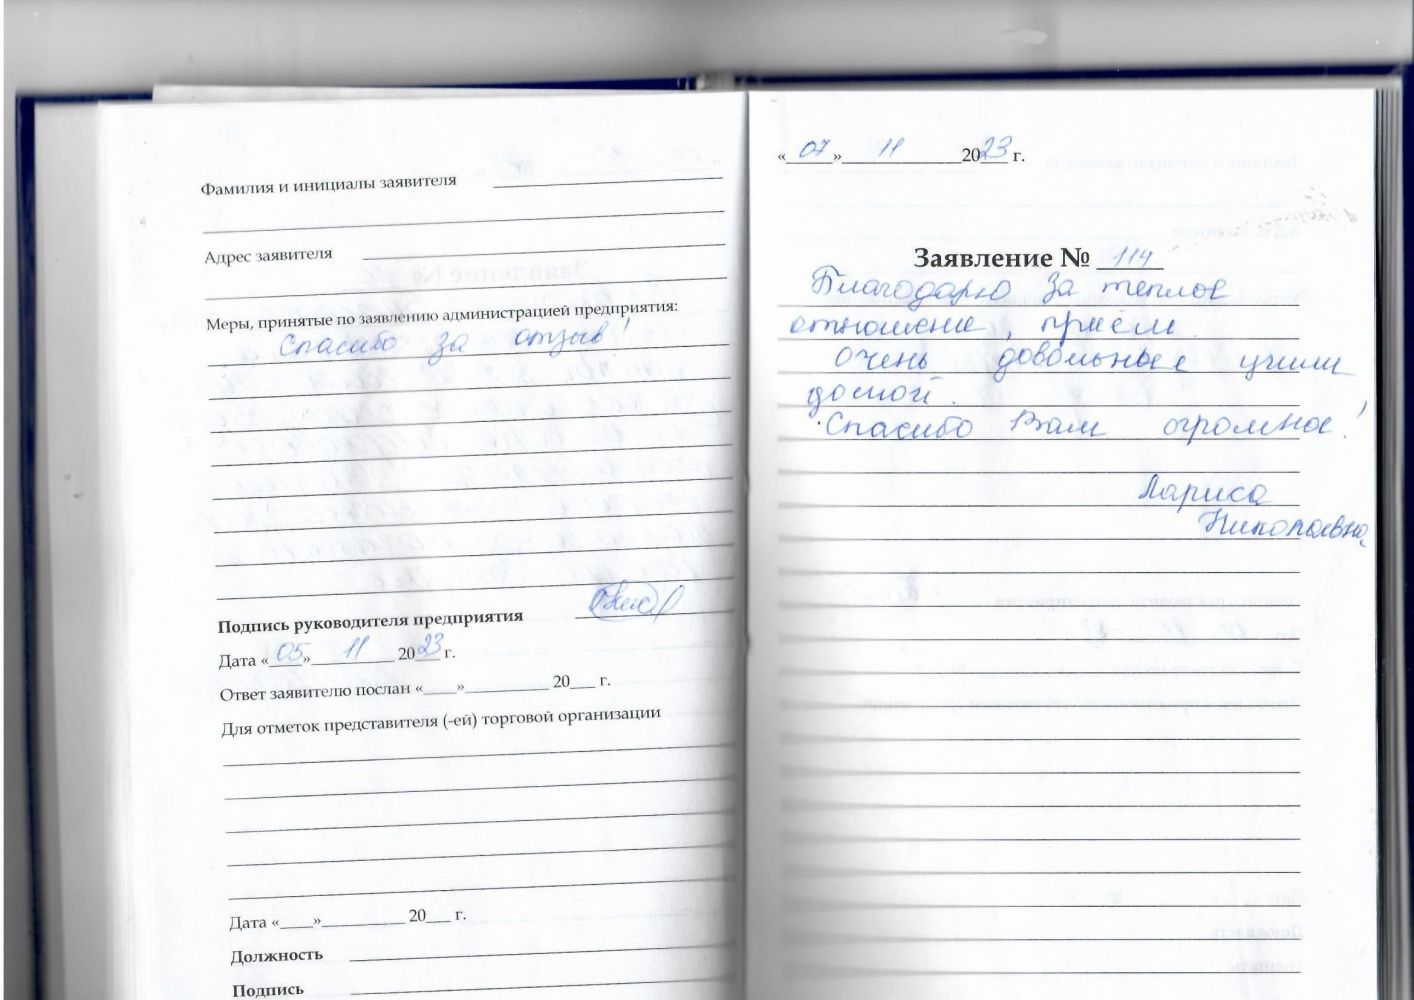 Фамилия и инициалы заявителя
Адрес заявителя
Меры, принятые по заявлению администрацией предприятия:
Спасибо за отзыв!
Подпись руководителя предприятия
Дата «05» 11 2023 г.
Ответ заявителю послан «____»__________ 20___ г.
Для отметок представителя (-ей) торговой организации
Дата «____»__________ 20___ г.
Должность
Подпись
«07» 11 2023 г.
Заявление № 114
Благодарю за теплое
отношение, приём.
Очень довольные ушли
домой.
Спасибо Вам огромное!
Лариса
Николаевна